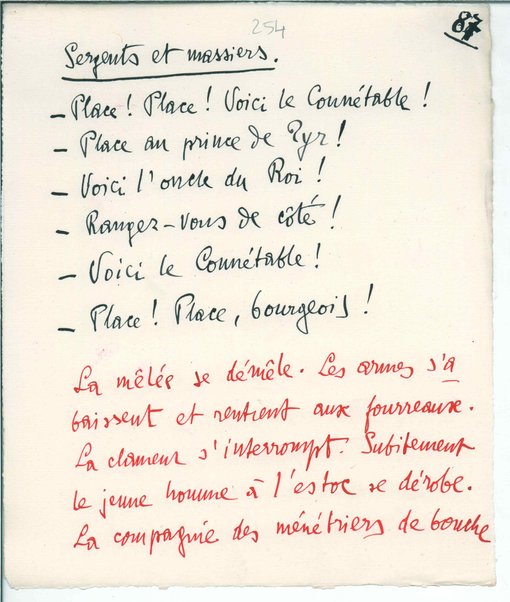 254
87
Sergents et massiers.
— Place! Place! Voici le Connétable!
— Place au prince de Tyr!
— Voici l'oncle du Roi!
— Rangez-vous de côté!
— Voici le Connétable!
— Place! Place, bourgeois!
La mêlée se démêle. Les armes s'a
baissent et rentrent aux fourreaux.
La clameur s'interrompt. Subitement
le jeune homme à l'estoc se dérobe.
La compagnie des ménétriers de bouche